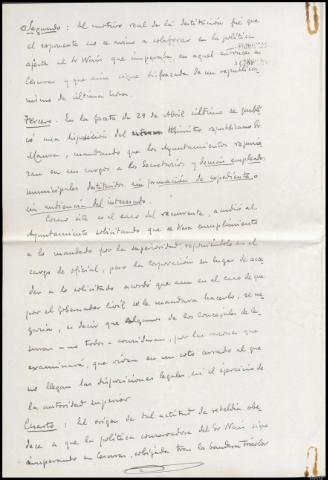 Segundo: El motivo real de la destitución fué que
el exponente no se avino a colaborar en la política
afecta al Sr Wais que imperaba en aquel entonces en
y que aún sigue disfrazada de un republica-
nismo de última hora.
Tercero. En la Gaceta de 29 de Abril último se publi-
có una disposición del Ministro republicano Sr
Maura, mandando que los Ayuntamientos repusie-
ran en sus cargos a los Secretarios y demás empleados
municipales destituidos sin formación de expediente o
sin audiencia del interesado.
Como éste es el caso del recurrente, acudió al
Ayuntamiento solicitando que se diera cumplimiento
a lo mandado por la superioridad reponiéndole en el
cargo de oficial, pero la corporación en lugar de acce-
der a lo solicitado acordó que aun en el caso de que
por el Gobernador Civil se le mandara hacerlo, se ne-
garía, es decir que algunos de los concejales de
no todos - consideran, por las razones que
examinará, que viven en un coto cerrado al que
no llegan las disposiciones legales, ni el ejercicio de
la autoridad superior
Cuarto: El origen de tal actitud de rebeldía obe-
dece a que la política conservadora del Sr Wais sigue
imperando en, cobijada tras la bandera tricolor